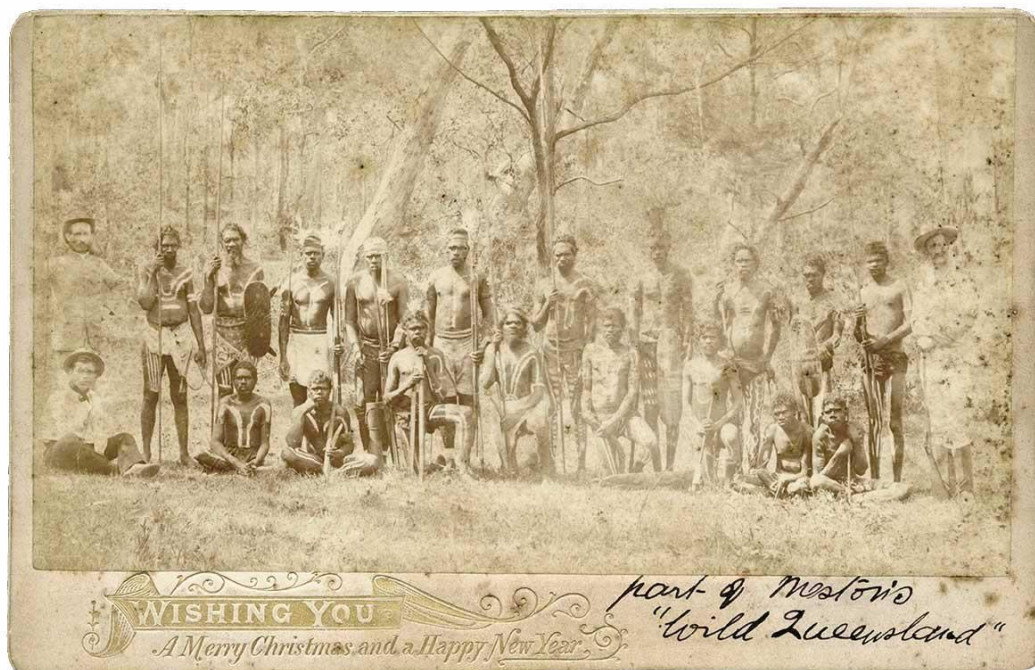 WISHING YOU
A Merry Christmas and a Happy New Year
part of Meston's
"Wild Queensland"